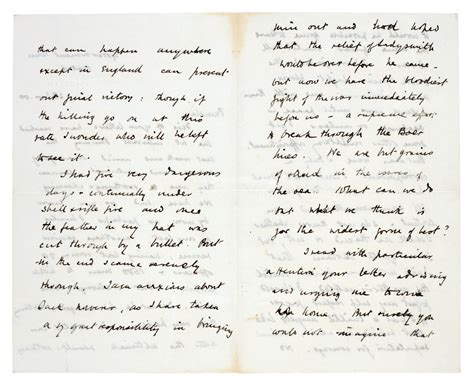 that can happen anywhere
except in England can prevent
our final victory: though if
the killing go on at this
rate I wonder who will be left
to see it.
I had five very dangerous
days - continually under
shell & rifle fire and once
the feather in my hat was
cut through by a bullet. But
in the end I came serenely
through. I am anxious about
Jack however, as I have taken
a great responsibility in bringing
him out and had hoped
that the relief of Ladysmith
would be over before he came -
but now we have the bloodiest
fight of the war immediately
before us - a supreme effort
to break through the Boer
lines. We are but grains
of sand in the
of the sea. What can we do
but what we think is
for the widest form of
I read with particular
attention your letter advising
and urging me to come
home. But surely you
would not imagine that